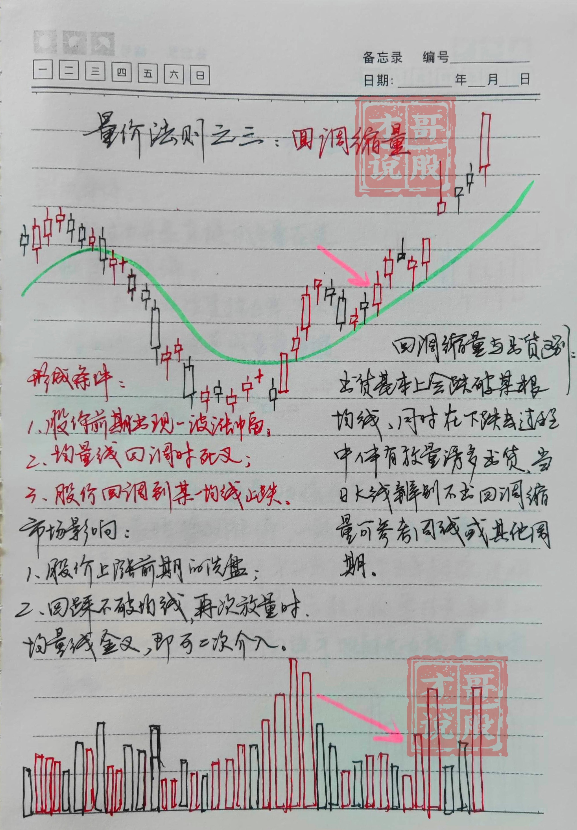 备忘录 编号
一 二 三 四 五 六 日
日期: 年 月 日
量价法则之三：回调缩量
才哥
说股
回调缩量与出货区别：
出货基本上会跌破某根
均线、同时在下跌过程
中伴有放量诱多出货、当
日K线辨别不出回调缩
量可参考周线或其他周
期。
形成条件：
1、股价前期出现一波涨幅；
2、均量线回调时死叉；
3、股价回调到某一均线止跌.
市场影响：
1、股价上涨前期的洗盘；
2、回踩不破均线，再次放量时.
均量线金叉，即可二次介入。
才哥
说股